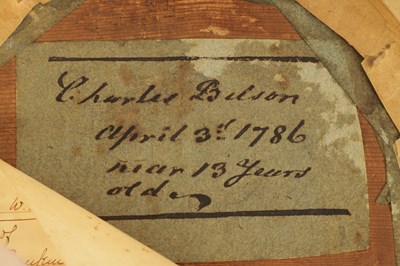 Charles Belson
April 3d. 1786
near 13 Years
old
W.
of